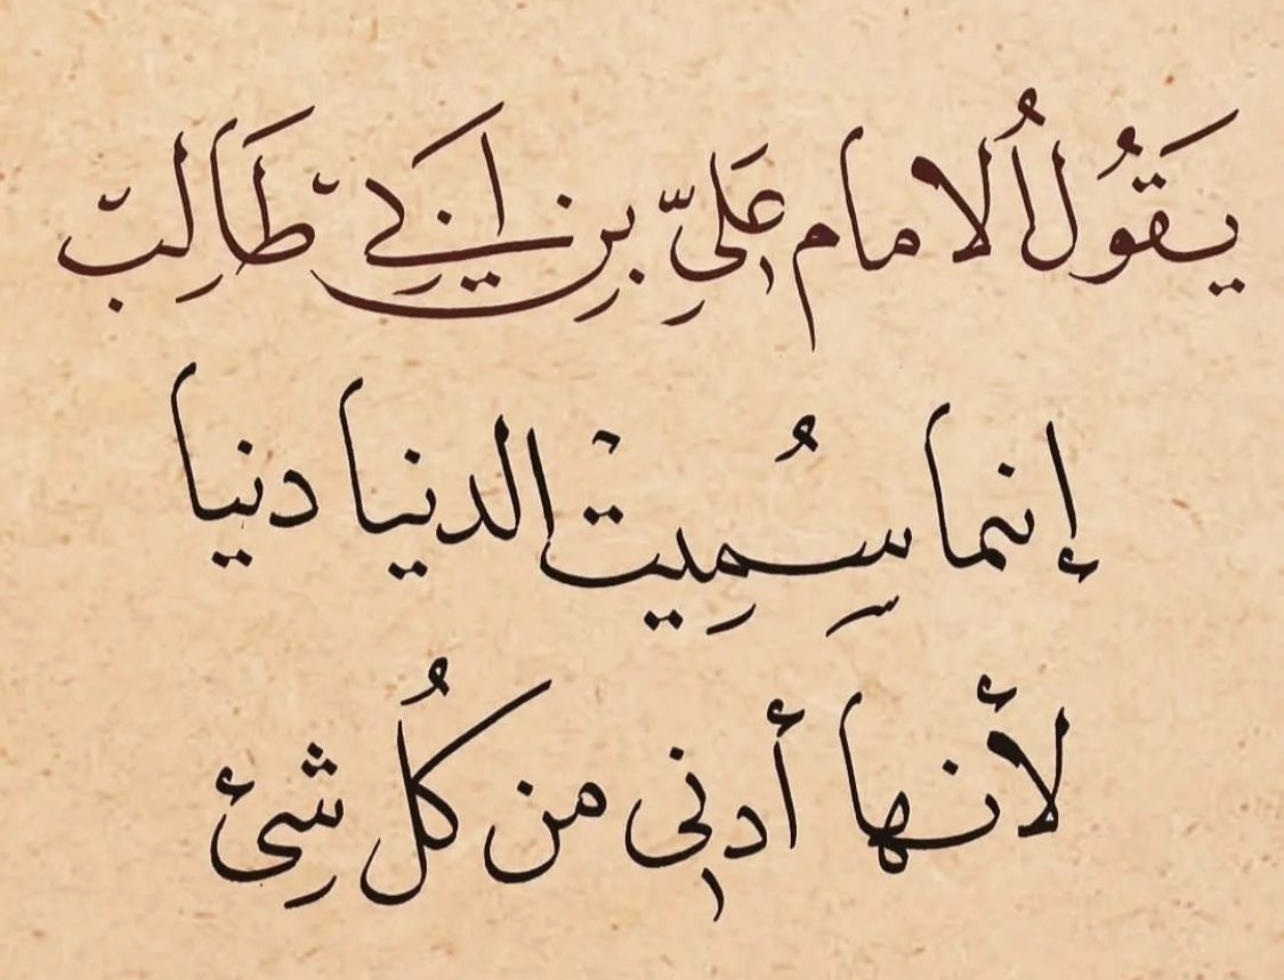 يَقُولُ الُامام عَليِّ بنِ اَبيِ طَالِب
إنما سُمِيت الدنيا دنيا
لأنها أدنى من كُل شِئ